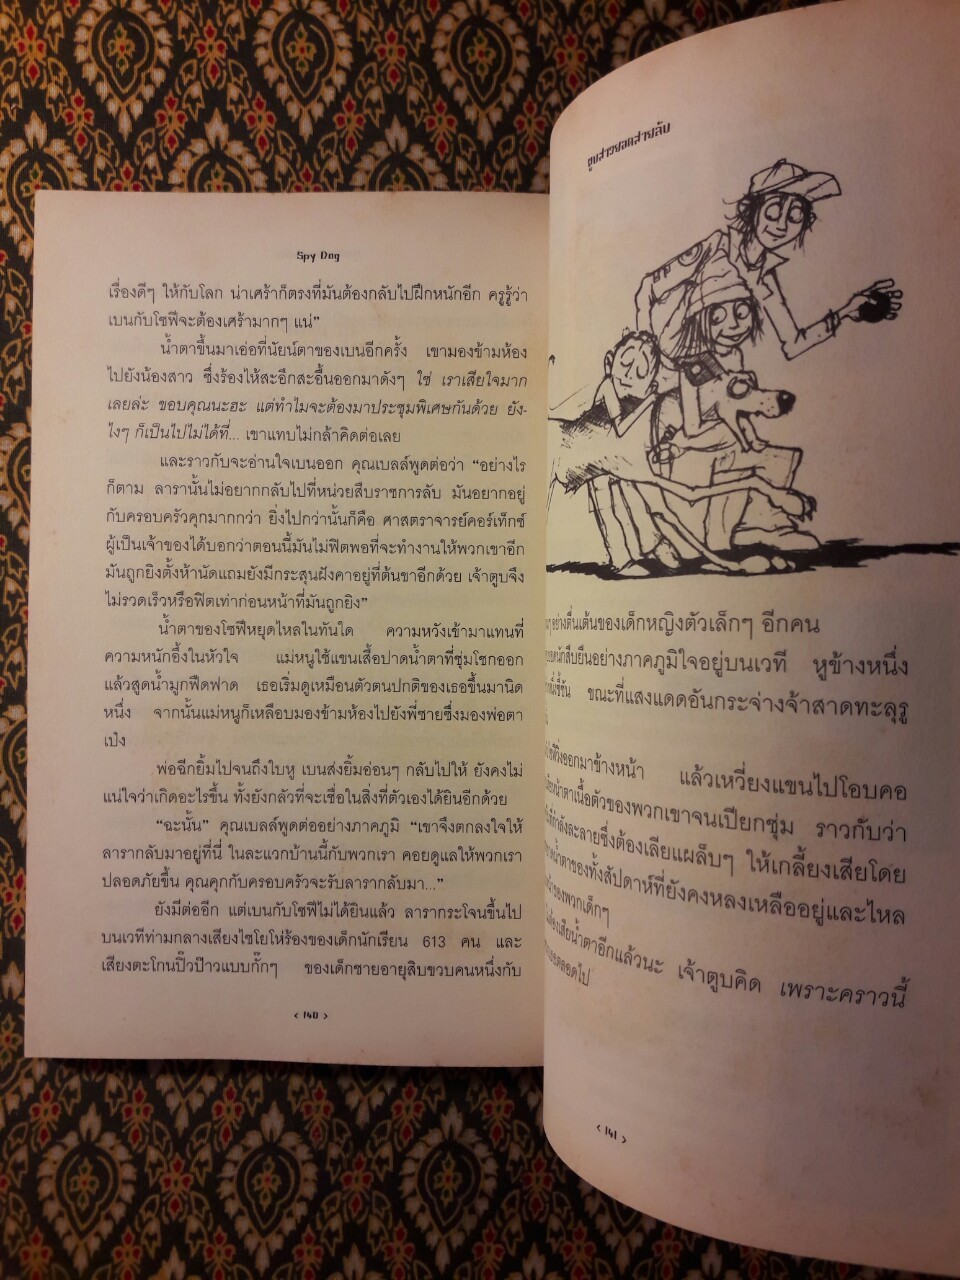 Spy Dog
เรื่องดีๆ ให้กับโลก น่าเศร้าก็ตรงที่มันต้องกลับไปฝึกหนักอีก ครูรู้ว่า
เบนกับโซฟีจะต้องเศร้ามากๆ แน่”
น้ำตาขึ้นมาเอ่อที่นัยน์ตาของเบนอีกครั้ง เขามองข้ามห้อง
ไปยังน้องสาว ซึ่งร้องไห้สะอึกสะอื้นออกมาดังๆ ใช่ เราเสียใจมาก
เลยล่ะ ขอบคุณนะฮะ แต่ทำไมจะต้องมาประชุมพิเศษกันด้วย ยัง-
ไงๆ ก็เป็นไปไม่ได้ที่... เขาแทบไม่กล้าคิดต่อเลย
และราวกับจะอ่านใจเบนออก คุณเบลล์พูดต่อว่า “อย่างไร
ก็ตาม ลารานั้นไม่อยากกลับไปที่หน่วยสืบราชการลับ มันอยากอยู่
กับครอบครัวคุกมากกว่า ยิ่งไปกว่านั้นก็คือ ศาสตราจารย์คอร์เท็กซ์
ผู้เป็นเจ้าของได้บอกว่าตอนนี้มันไม่ฟิตพอที่จะทำงานให้พวกเขาอีก
มันถูกยิงตั้งห้านัดแถมยังมีกระสุนฝังคาอยู่ที่ต้นขาอีกด้วย เจ้าตูบจึง
ไม่รวดเร็วหรือฟิตเท่าก่อนหน้าที่มันถูกยิง”
น้ำตาของโซฟีหยุดไหลในทันใด ความหวังเข้ามาแทนที่
ความหนักอึ้งในหัวใจ แม่หนูใช้แขนเสื้อปาดน้ำตาที่ชุ่มโชกออก
แล้วสูดน้ำมูกฟืดฟาด เธอเริ่มดูเหมือนตัวตนปกติของเธอขึ้นมานิด
หนึ่ง จากนั้นแม่หนูก็เหลือบมองข้ามห้องไปยังพี่ชายซึ่งมองพ่อตา
เป๋ง
พ่อฉีกยิ้มไปจนถึงใบหู เบนส่งยิ้มอ่อนๆ กลับไปให้ ยังคงไม่
แน่ใจว่าเกิดอะไรขึ้น ทั้งยังกลัวที่จะเชื่อในสิ่งที่ตัวเองได้ยินอีกด้วย
“ฉะนั้น” คุณเบลล์พูดต่ออย่างภาคภูมิ “เขาจึงตกลงใจให้
ลารากลับมาอยู่ที่นี่ ในละแวกบ้านนี้กับพวกเรา คอยดูแลให้พวกเรา
ปลอดภัยขึ้น คุณคุกกับครอบครัวจะรับลารากลับมา...”
ยังมีต่ออีก แต่เบนกับโซฟีไม่ได้ยินแล้ว ลารากระโจนขึ้นไป
บนเวทีท่ามกลางเสียงไชโยโห่ร้องของเด็กนักเรียน 613 คน และ
เสียงตะโกนปิ๊วป๊าวแบบกั๊กๆ ของเด็กชายอายุสิบขวบคนหนึ่งกับ
< 140 >
ตูบสาวยอดสายลับ
อย่างตื่นเต้นของเด็กหญิงตัวเล็กๆ อีกคน
ยืนอย่างภาคภูมิใจอยู่บนเวที หูข้างหนึ่ง
ขณะที่แสงแดดอันกระจ่างจ้าสาดทะลุรู
วิ่งออกมาข้างหน้า แล้วเหวี่ยงแขนไปโอบคอ
น้ำตาเนื้อตัวของพวกเขาจนเปียกชุ่ม ราวกับว่า
กำลังละลายซึ่งต้องเลียแผล็บๆ ให้เกลี้ยงเสียโดย
น้ำตาของทั้งสัปดาห์ที่ยังคงหลงเหลืออยู่และไหล
ของพวกเด็กๆ
ต้องเสียน้ำตาอีกแล้วนะ เจ้าตูบคิด เพราะคราวนี้
ตลอดไป
< 141 >